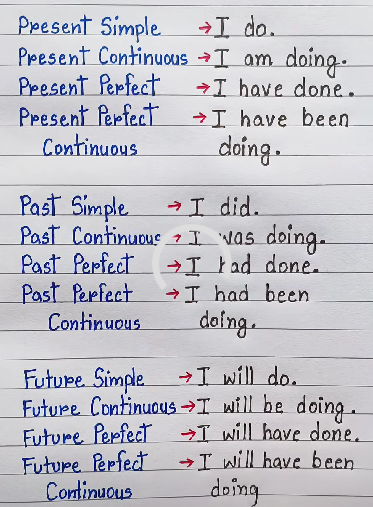 Present Simple → I do.
Present Continuous → I am doing.
Present Perfect → I have done.
Present Perfect → I have been
Continuous doing.
Past Simple → I did.
Past Continuous → I was doing.
Past Perfect → I had done.
Past Perfect → I had been
Continuous doing.
Future Simple → I will do.
Future Continuous → I will be doing.
Future Perfect → I will have done.
Future Perfect → I will have been
Continuous doing